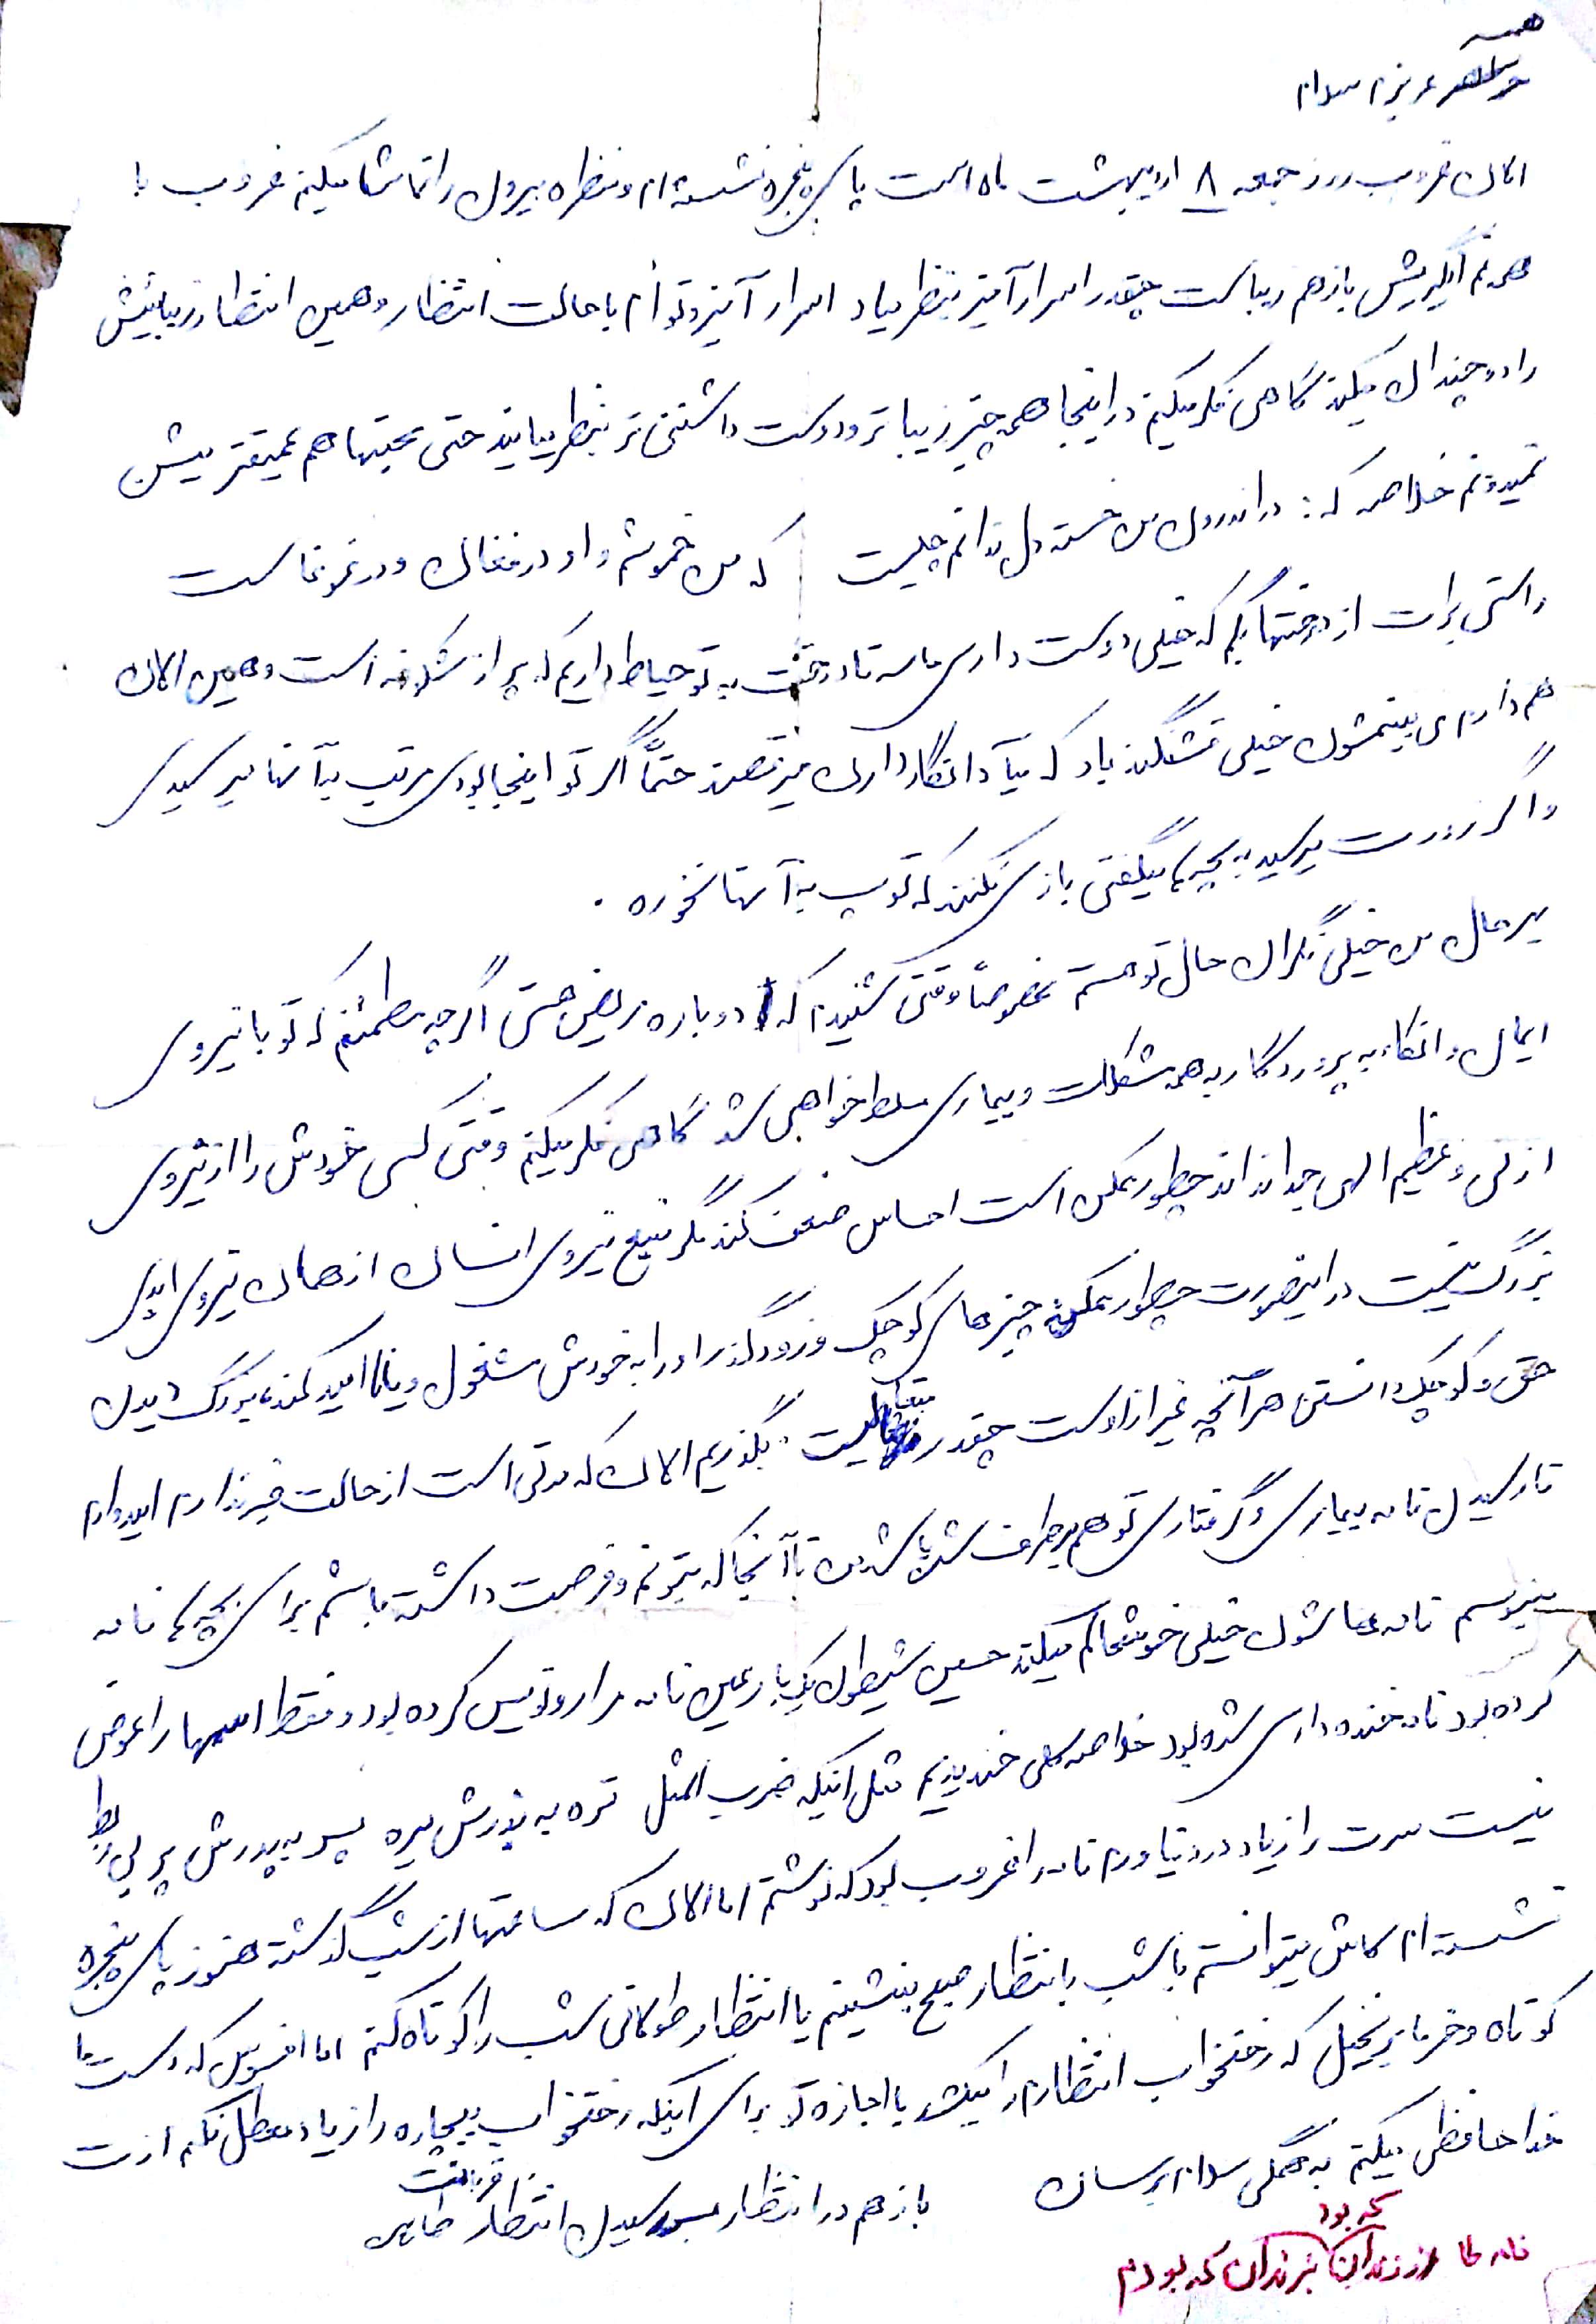 همسر
خواهر عزیزم سلام
الان غروب روز جمعه ۸ اردیبهشت ماه است پای پنجره نشسته ام و منظره بیرون را تماشا میکنم غروب با
همه دلگیریش باز هم زیباست چقدر اسرار آمیز بنظر میاد اسرار آمیز و توأم با حالت انتظار و همین انتظار زیبائیش
را دو چندان میکند گاهی فکر میکنم در اینجا همه چیز زیبا تر و دوست داشتنی تر بنظر میایند حتی محبتها هم عمیقتر میشن
نمیدونم خلاصه که: در اندرون من خسته دل ندانم چیست که من خموشم و او در فغان و در غوغاست
راستی برات از درختها بگم که خیلی دوست داری ما سه تا درخت تو حیاط داریم که پر از شکوفه است و همین الان
هم دارم می بینمشون خیلی قشنگند باد که میآد انگار دارن میرقصند حتماً اگر تو اینجا بودی مرتب به آنها میرسیدی
و اگر زورت میرسید به بچه ها میگفتی بازی نکنند که توپ به آنها نخوره .
بهر حال من خیلی نگران حال تو هستم مخصوصاً وقتی شنیدم که دوباره مریض هستی اگر چه مطمئنم که تو با نیروی
ایمان و اتکاء به پروردگار به همه مشکلات و بیماری مسلط خواهی شد گاهی فکر میکنم وقتی کسی خودش را از نیروی
ازلی و عظیم الهی جدا نداند چطور ممکن است احساس ضعف کند مگر منبع نیروی انسان از همان نیروی ابدی
بزرگ نیست در اینصورت چطور ممکنه چیزهای کوچک و زودگذر او را به خودش مشغول و یا ناامید کند، بزرگ دیدن
حق و کوچک دانستن هر آنچه غیر از اوست چقدر متعالیست . بگذریم الان که مدتی است از حالت خبر ندارم امیدوارم
تا رسیدن نامه بیماری و گرفتاری تو هم برطرف شده باشد من تا آنجا که بتونم و فرصت داشته باشم برای بچه ها نامه
مینویسم نامه هاشون خیلی خوشحالم میکند حسین شیطون یک بار عین نامه مرا رونویس کرده بود و فقط اسمها را عوض
کرده بود نامه خنده داری شده بود خلاصه کلی خندیدیم مثل اینکه ضرب المثل تره به تخمش میره پسر به پدرش پر بی ربط
نیست سرت را زیاد درد نیاورم نامه را غروب بود که نوشتم اما الان که ساعتها از شب گذشته هنوز پای پنجره
نشسته ام کاش میتوانستم با شب بانتظار صبح بنشینم یا انتظار طولانی شب را کوتاه کنم اما افسوس که دست ما
کوتاه و خرما بر نخیل که رختخواب انتظارم را میکشد با اجازه تو برای اینکه رختخواب بیچاره را زیاد معطل نکنم ازت
خدا حافظی میکنم به همگی سلام برسان باز هم در انتظار بسر رسیدن انتظار قربانت طاهره
نامه طا از زندان به زندان که بودم
که بود